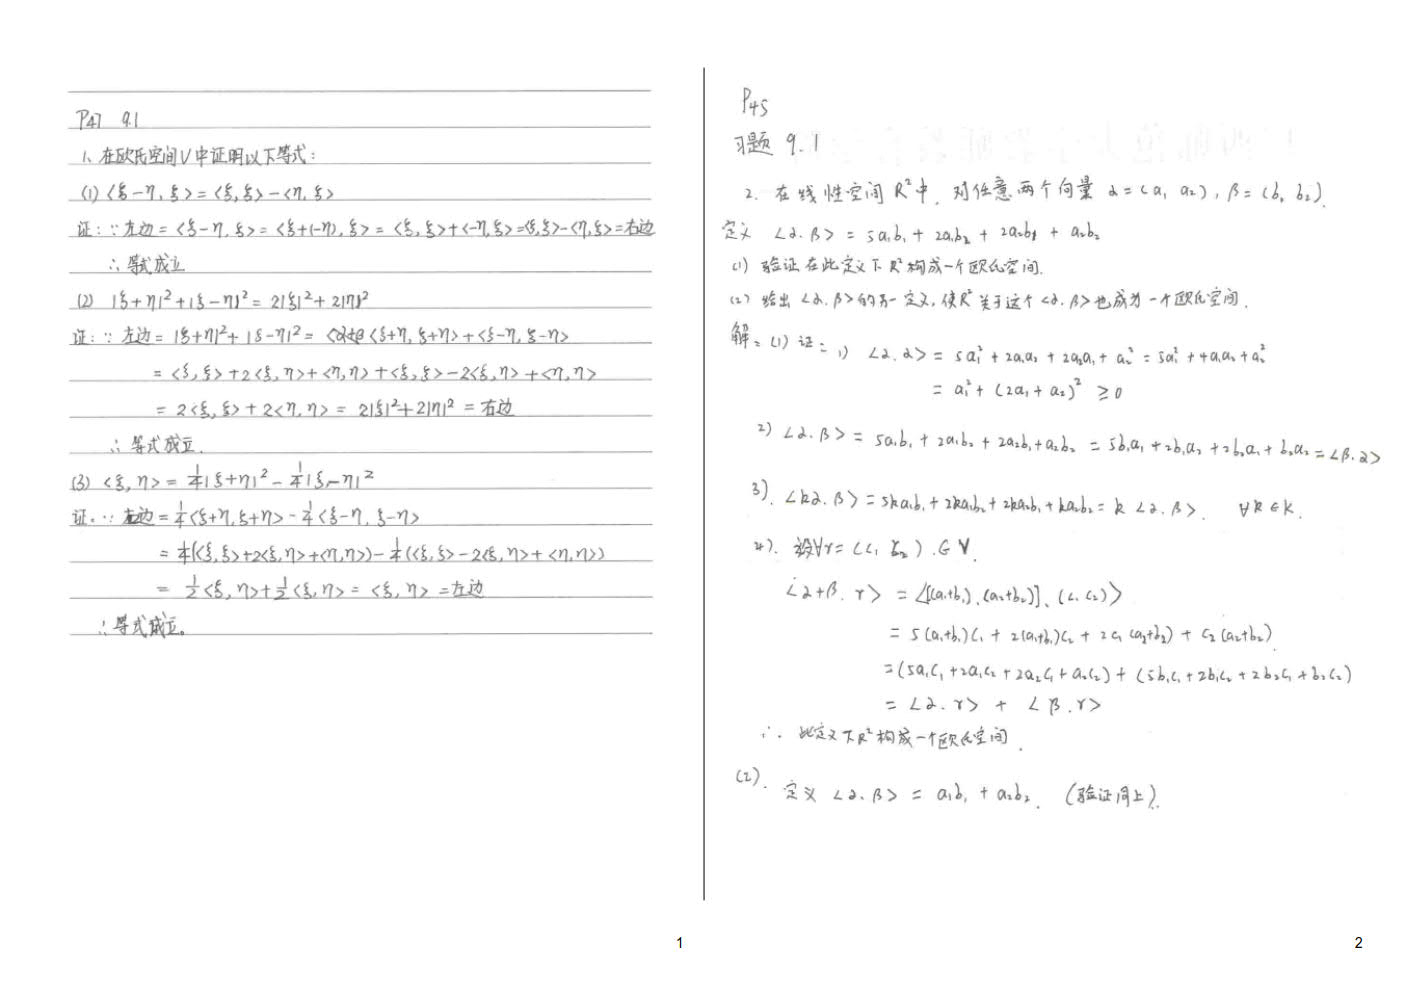 P47 9.1
1、在欧氏空间V中证明以下等式:
(1) <ξ-η, ξ> = <ξ,ξ> - <η, ξ>
证: ∵ 左边 = <ξ-η, ξ> = <ξ+(-η), ξ> = <ξ, ξ> + <-η, ξ> = <ξ,ξ> - <η, ξ> = 右边
∴ 等式成立
(2) |ξ+η|² + |ξ-η|² = 2|ξ|² + 2|η|²
证: ∵ 左边 = |ξ+η|² + |ξ-η|² = <ξ+η, ξ+η> + <ξ-η, ξ-η>
= <ξ, ξ> + 2<ξ, η> + <η, η> + <ξ, ξ> - 2<ξ, η> + <η, η>
= 2<ξ, ξ> + 2<η, η> = 2|ξ|² + 2|η|² = 右边
∴ 等式成立.
(3) <ξ, η> = 1/4|ξ+η|² - 1/4|ξ-η|²
证. ∵ 右边 = 1/4<ξ+η, ξ+η> - 1/4<ξ-η, ξ-η>
= 1/4(<ξ, ξ> + 2<ξ, η> + <η, η>) - 1/4(<ξ, ξ> - 2<ξ, η> + <η, η>)
= 1/2<ξ, η> + 1/2<ξ, η> = <ξ, η> = 左边
∴ 等式成立。
1
P45
习题 9.1
2. 在线性空间 R²中, 对任意两个向量 α=(a₁ a₂), β=(b₁ b₂).
定义 <α.β> = 5a₁b₁ + 2a₁b₂ + 2a₂b₁ + a₂b₂
(1) 验证在此定义下 R²构成一个欧氏空间.
(2) 给出<α.β>的另一定义,使R²关于这个<α.β>也成为一个欧氏空间.
解: (1) 证: 1) <α.α> = 5a₁² + 2a₁a₂ + 2a₂a₁ + a₂² = 5a₁² + 4a₁a₂ + a₂²
= a₁² + (2a₁ + a₂)² ≥ 0
2) <α.β> = 5a₁b₁ + 2a₁b₂ + 2a₂b₁ + a₂b₂ = 5b₁a₁ + 2b₁a₂ + 2b₂a₁ + b₂a₂ = <β.α>
3). <kα.β> = 5ka₁b₁ + 2ka₁b₂ + 2ka₂b₁ + ka₂b₂ = k<α.β>. ∀k∈K.
4). 设∀r=(c₁ c₂).∈V.
<α+β. r> = <[(a₁+b₁).(a₂+b₂)]. (c₁ c₂)>
= 5(a₁+b₁)c₁ + 2(a₁+b₁)c₂ + 2c₁(a₂+b₂) + c₂(a₂+b₂).
= (5a₁c₁ + 2a₁c₂ + 2a₂c₁ + a₂c₂) + (5b₁c₁ + 2b₁c₂ + 2b₂c₁ + b₂c₂)
= <α.r> + <β.r>
∴. 此定义下R²构成一个欧氏空间.
(2). 定义 <α.β> = a₁b₁ + a₂b₂. (验证同上).
2